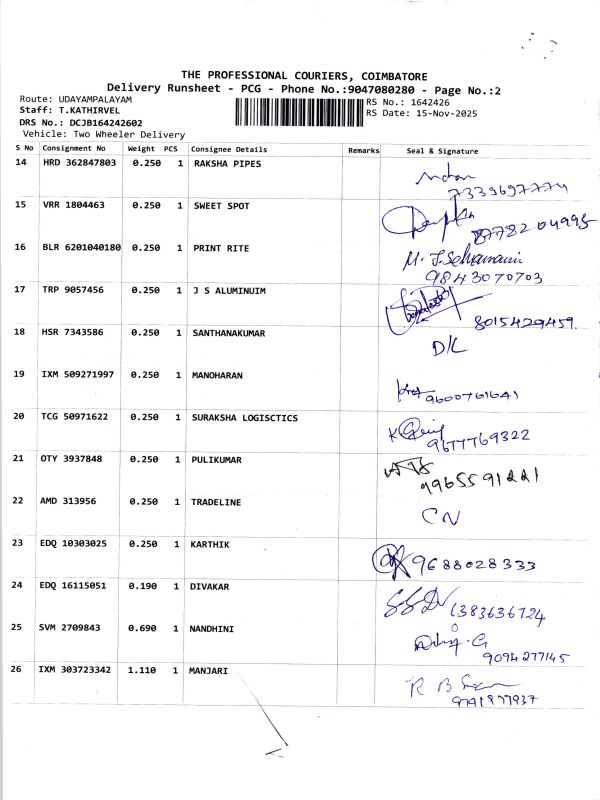 THE PROFESSIONAL COURIERS, COIMBATORE
Delivery Runsheet - PCG - Phone No.:9047080280 - Page No.:2
Route: UDAYAMPALAYAM
RS No.: 1642426
Staff: T.KATHIRVEL
RS Date: 15-Nov-2025
DRS No.: DCJB164242602
Vehicle: Two Wheeler Delivery
S No Consignment No Weight PCS Consignee Details Remarks Seal & Signature
14 HRD 362847803 0.250 1 RAKSHA PIPES
15 VRR 1804463 0.250 1 SWEET SPOT
8778204995
16 BLR 6201040180 0.250 1 PRINT RITE
9843070703
17 TRP 9057456 0.250 1 J S ALUMINUIM
8015429459
18 HSR 7343586 0.250 1 SANTHANAKUMAR
D/L
19 IXM 509271997 0.250 1 MANOHARAN
9600761641
20 TCG 50971622 0.250 1 SURAKSHA LOGISCTICS
9677769322
21 OTY 3937848 0.250 1 PULIKUMAR
9965591221
22 AMD 313956 0.250 1 TRADELINE
CN
23 EDQ 10303025 0.250 1 KARTHIK
9688028333
24 EDQ 16115051 0.190 1 DIVAKAR
25 SVM 2709843 0.690 1 NANDHINI
9094277145
26 IXM 303723342 1.110 1 MANJARI